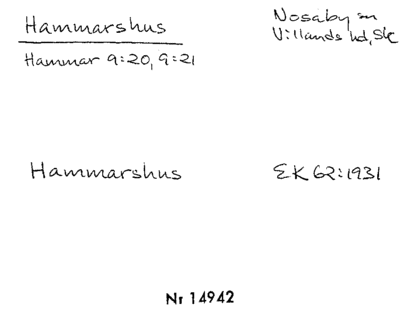 Hammarshus
Nosaby sn
Villands hd, Sk
Hammar 9:20, 9:21
Hammarshus
EK 62:1931
Nr 14942